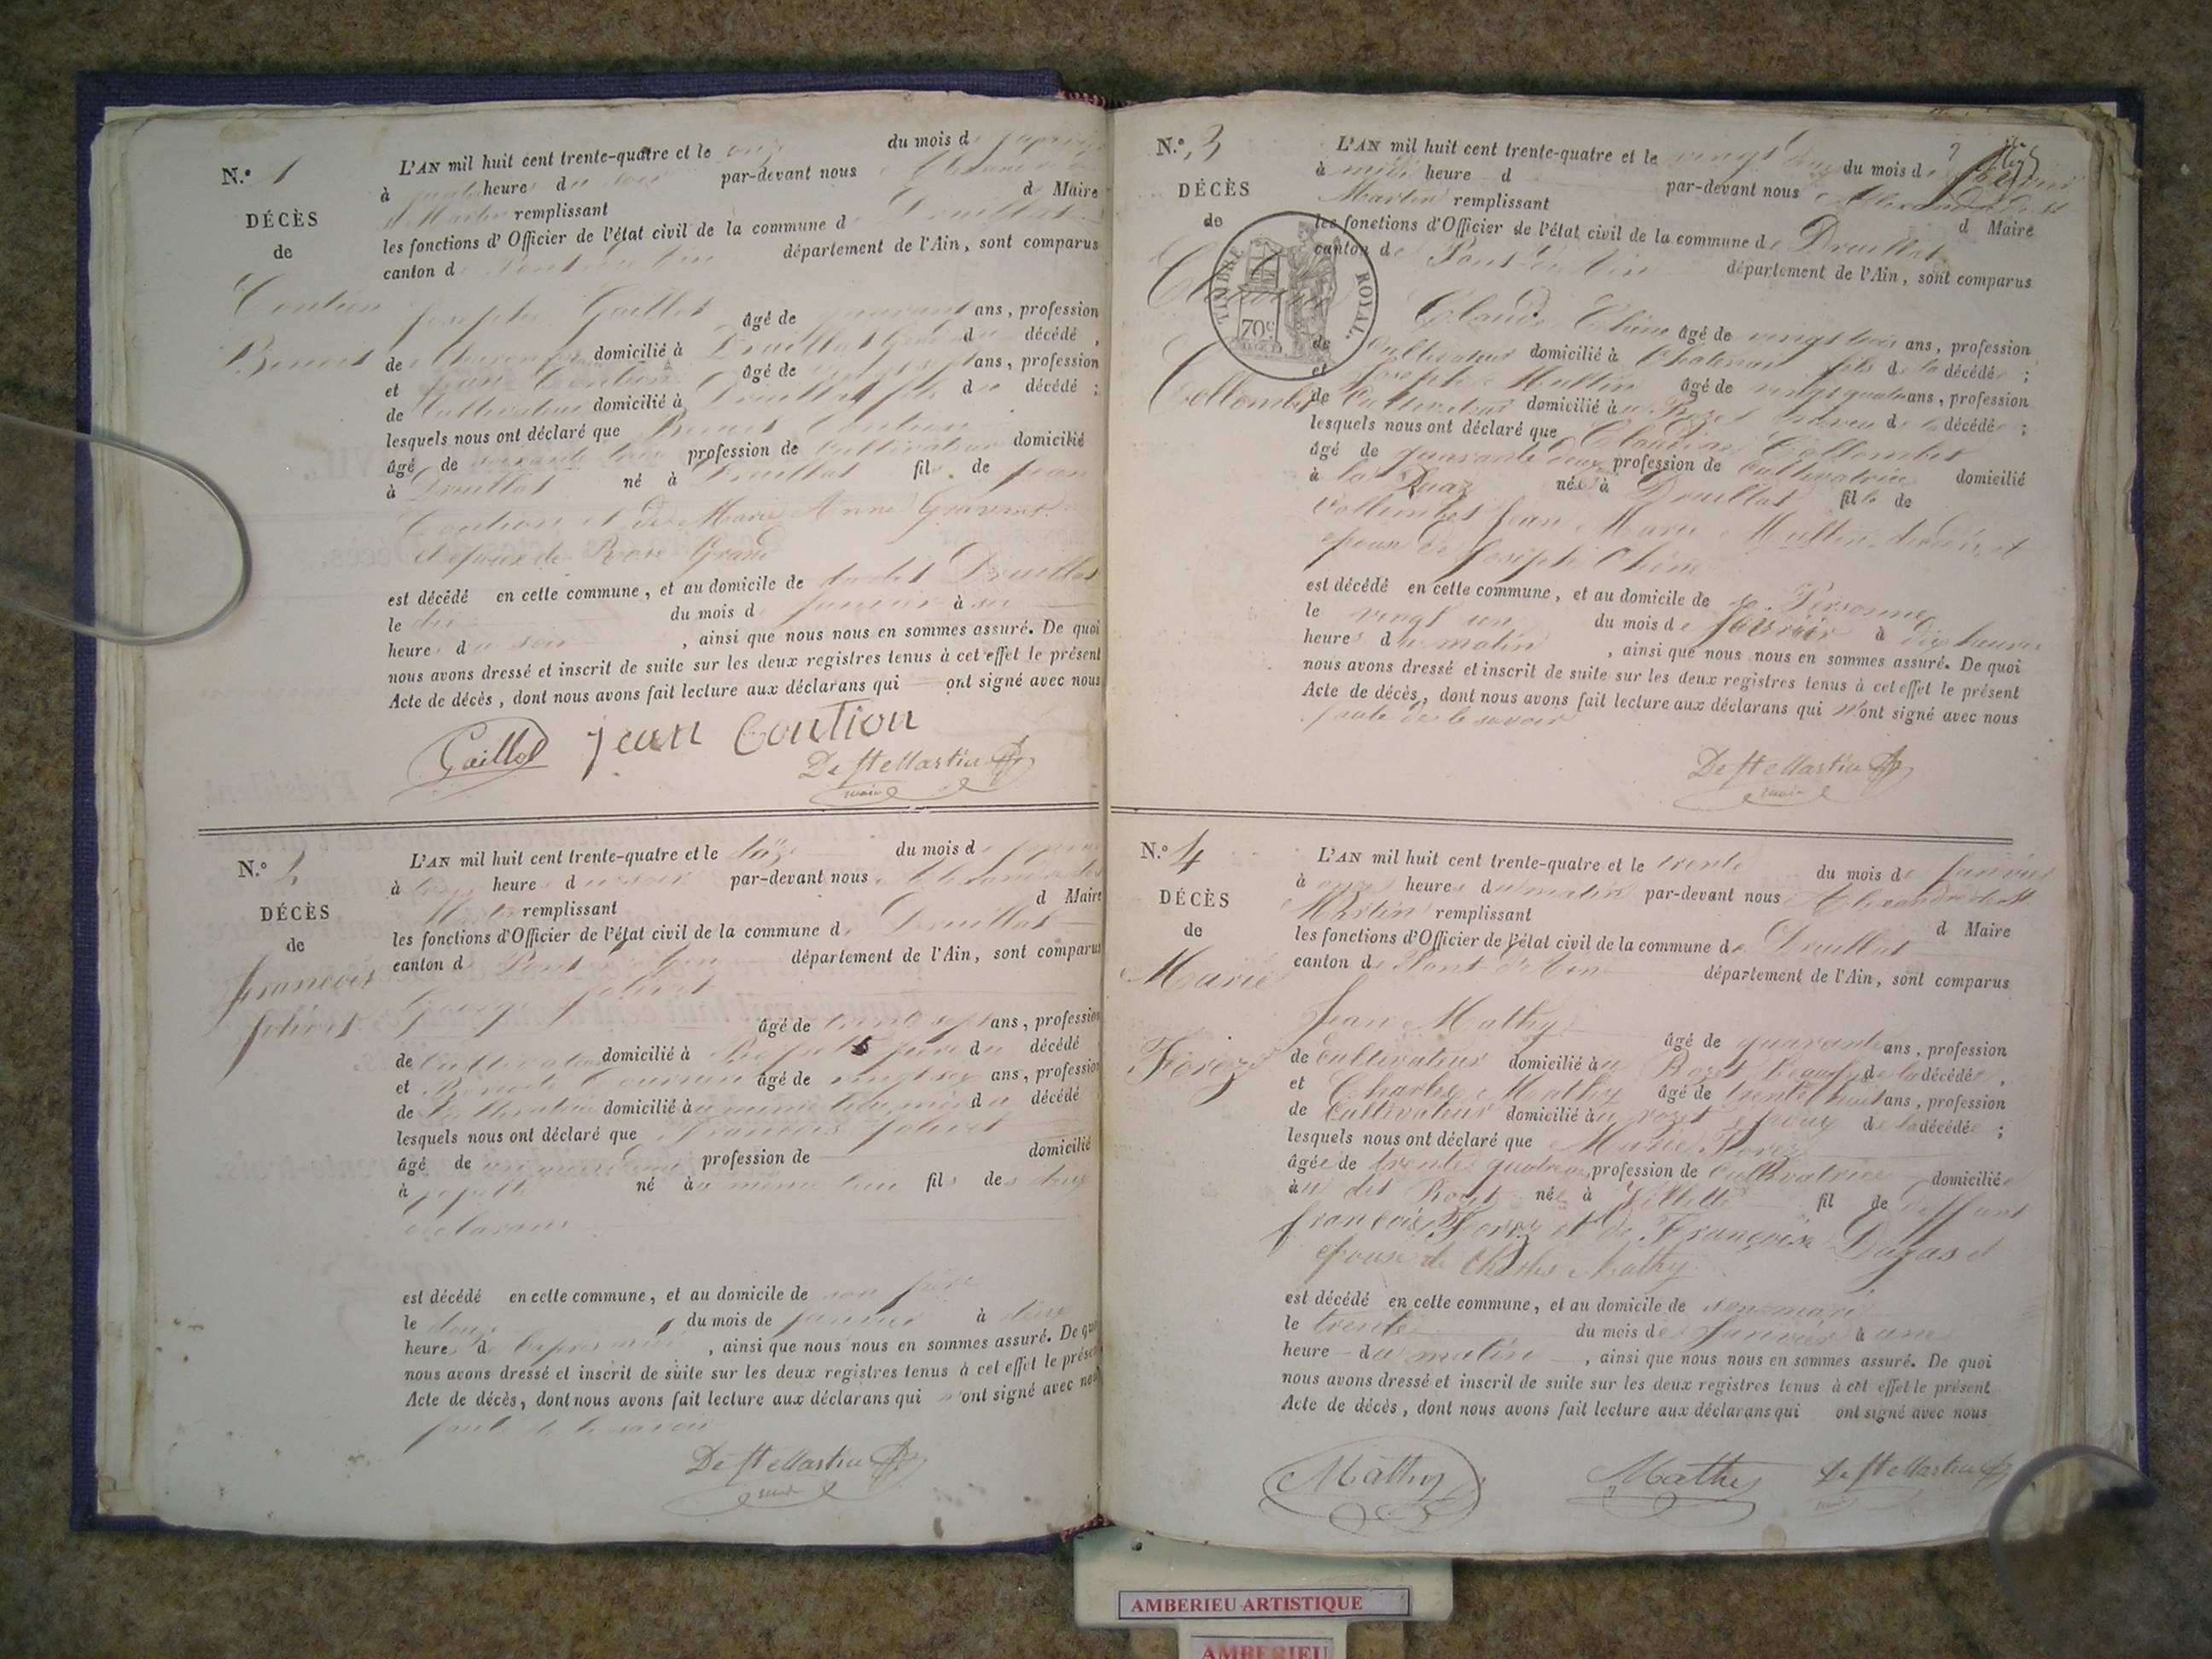 N.° 1
DÉCÈS
de
Coution
Benoit
L'AN mil huit cent trente-quatre et le onze du mois de janvier
à quatre heures du soir par-devant nous Alexandre de
St Martin remplissant d Maire
les fonctions d'Officier de l'état civil de la commune de Druillat
canton de Pont d'ain département de l'Ain, sont comparus
Joseph Gaillot âgé de ans, profession
de domicilié à Druillat du décédé,
et Jean Coution âgé de ans, profession
de Cultivateur domicilié à Druillat fils du décédé ;
lesquels nous ont déclaré que Benoit Coution
âgé de soixante trois profession de Cultivateur domicilié
à Druillat né à Druillat fils de Jean
Coution et de Marie Anne
et époux de Rose Grand
est décédé en cette commune, et au domicile de dudit Druillat
le dix du mois de janvier à six
heures du soir, ainsi que nous nous en sommes assuré. De quoi
nous avons dressé et inscrit de suite sur les deux registres tenus à cet effet le présent
Acte de décès, dont nous avons fait lecture aux déclarans qui ont signé avec nous
Gaillot jean Coution
De St Martin
maire
N.° 2
DÉCÈS
de
françois
Jolivet
L'AN mil huit cent trente-quatre et le douze du mois de janvier
à trois heures du soir par-devant nous Alexandre de St
Martin remplissant d Maire
les fonctions d'Officier de l'état civil de la commune de Druillat
canton de Pont d'ain département de l'Ain, sont comparus
George Jolivet
âgé de trente sept ans, profession
de Cultivateur domicilié à père du décédé
et Benoite âgé de vingt six ans, profession
de Cultivatrice domicilié au même lieu mère du décédé
lesquels nous ont déclaré que françois Jolivet
âgé de profession de domicilié
à né au même lieu fils des deux
déclarans
est décédé en cette commune, et au domicile de son père
le douze du mois de janvier à deux
heures de l'après midi, ainsi que nous nous en sommes assuré. De quoi
nous avons dressé et inscrit de suite sur les deux registres tenus à cet effet le présent
Acte de décès, dont nous avons fait lecture aux déclarans qui n'ont signé avec nous
faute de le savoir
De St Martin
maire
N.° 3
DÉCÈS
de
Claudine
Collombet
TIMBRE ROYAL.
70c
L'AN mil huit cent trente-quatre et le vingt deux du mois de
à midi heure d par-devant nous Alexandre de St
Martin remplissant d Maire
les fonctions d'Officier de l'état civil de la commune de Druillat
canton de Pont d'ain département de l'Ain, sont comparus
Claude Chêne âgé de vingt trois ans, profession
de Cultivateur domicilié à fils de la décédée ;
et Joseph Multin âgé de vingt quatre ans, profession
de Cultivateur domicilié au Rozet neveu de la décédée ;
lesquels nous ont déclaré que Claudine Collombet
âgé de quarante deux profession de Cultivatrice domicilié
à la Ruaz née à Druillat fille de
Collombet Jean Marie Multin décédés et
épouse de Joseph Chêne
est décédé en cette commune, et au domicile de sa Personne
le vingt un du mois de janvier à dix heures
heures du matin, ainsi que nous nous en sommes assuré. De quoi
nous avons dressé et inscrit de suite sur les deux registres tenus à cet effet le présent
Acte de décès, dont nous avons fait lecture aux déclarans qui n'ont signé avec nous
faute de le savoir
De St Martin
maire
N.° 4
DÉCÈS
de
Marie
Forez
L'AN mil huit cent trente-quatre et le trente du mois de janvier
à onze heures du matin par-devant nous Alexandre de St
Martin remplissant d Maire
les fonctions d'Officier de l'état civil de la commune de Druillat
canton de Pont d'Ain département de l'Ain, sont comparus
Jean Mathy
âgé de quarante ans, profession
de Cultivateur domicilié au Rozet de la décédée,
et Charles Mathy âgé de trente huit ans, profession
de Cultivateur domicilié au rozet époux de la décédée ;
lesquels nous ont déclaré que Marie Forez
âgée de trente quatre profession de Cultivatrice domiciliée
au dit Rozet née à Villette fil de deffunt
françois Forez et de Françoise Dagas et
épouse de Charles Mathy
est décédé en cette commune, et au domicile de son mari
le trente du mois de Janvier à une
heure du matin, ainsi que nous nous en sommes assuré. De quoi
nous avons dressé et inscrit de suite sur les deux registres tenus à cet effet le présent
Acte de décès, dont nous avons fait lecture aux déclarans qui ont signé avec nous
Mathy Mathy De St Martin
AMBERIEU ARTISTIQUE
AMBERIEU